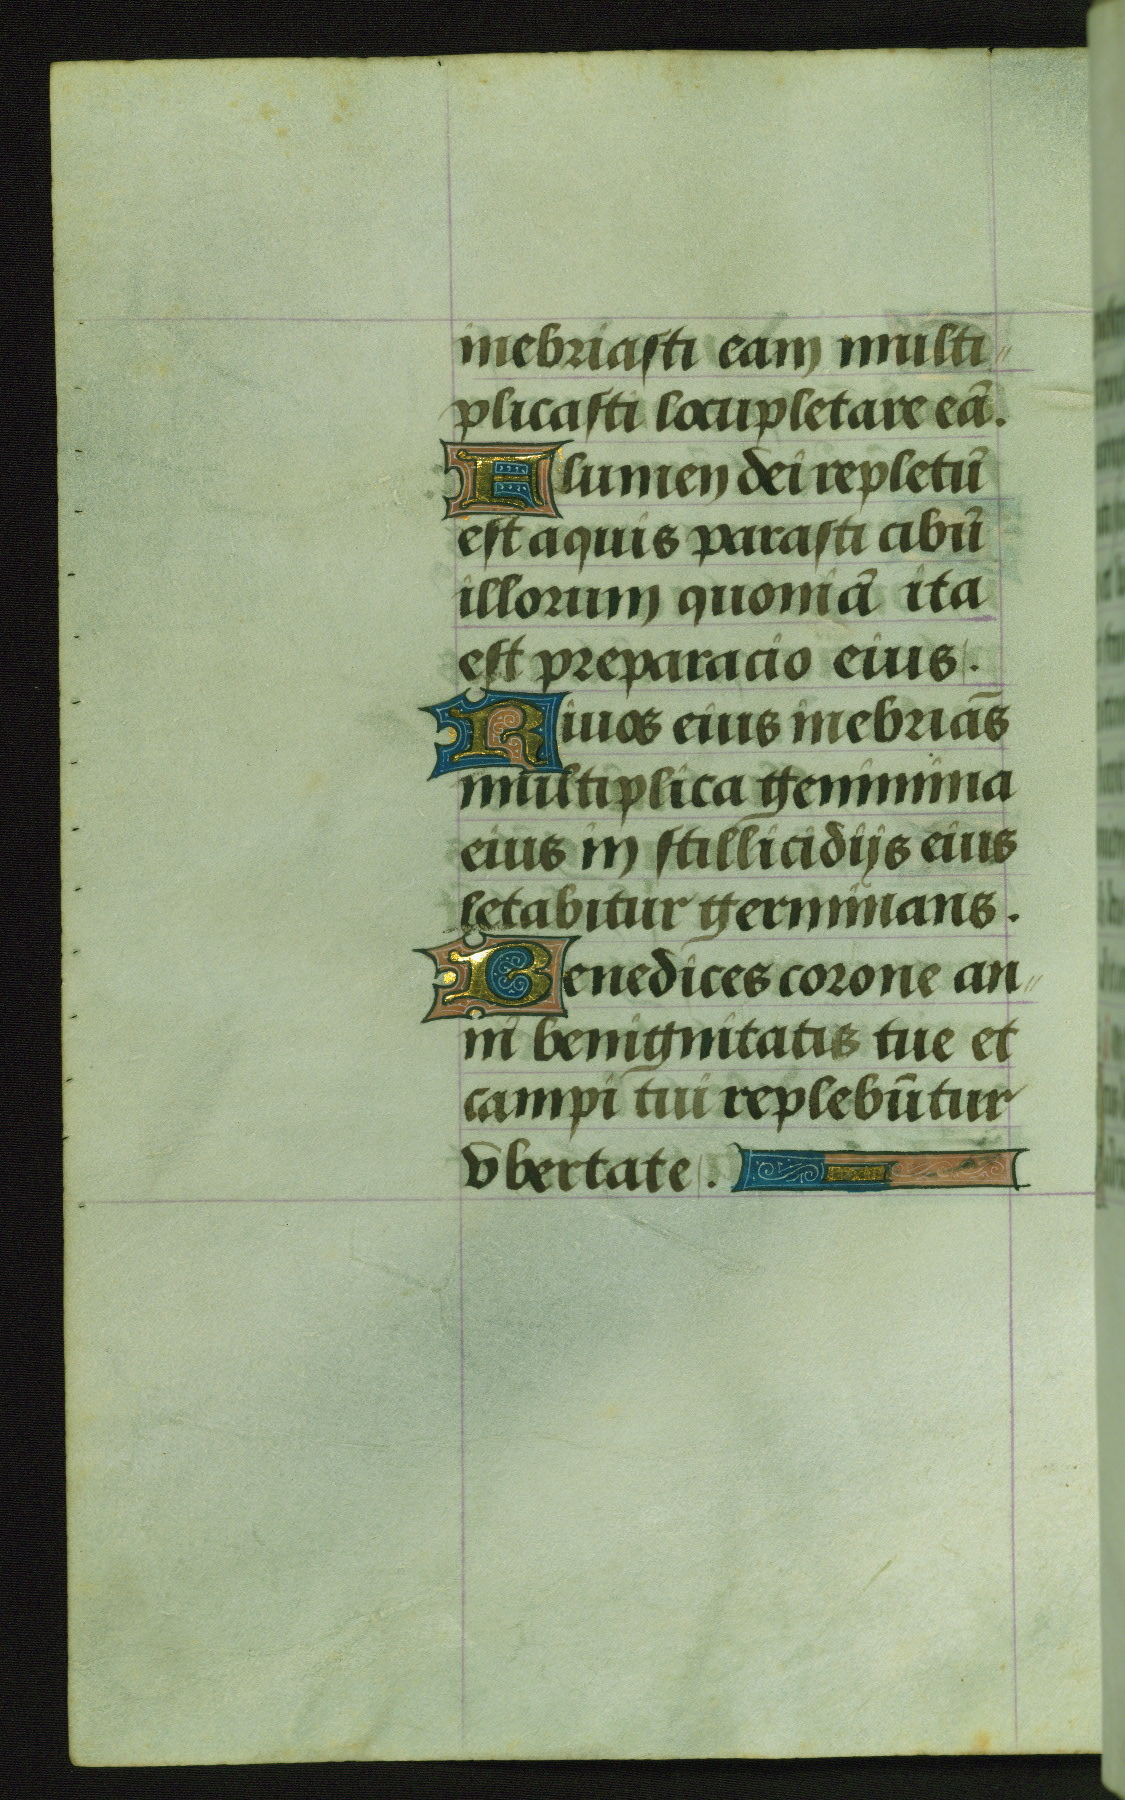 inebriasti eam multi〃
plicasti locupletare eā.
Flumen dei repletū
est aquis parasti cibū
illorum quoniā ita
est preparacio eius.
Riuos eius inebriās
multiplica genimina
eius in stillicidijs eius
letabitur germinans.
Benedices corone an〃
ni benignitatis tue et
campi tui replebūtur
vbertate.